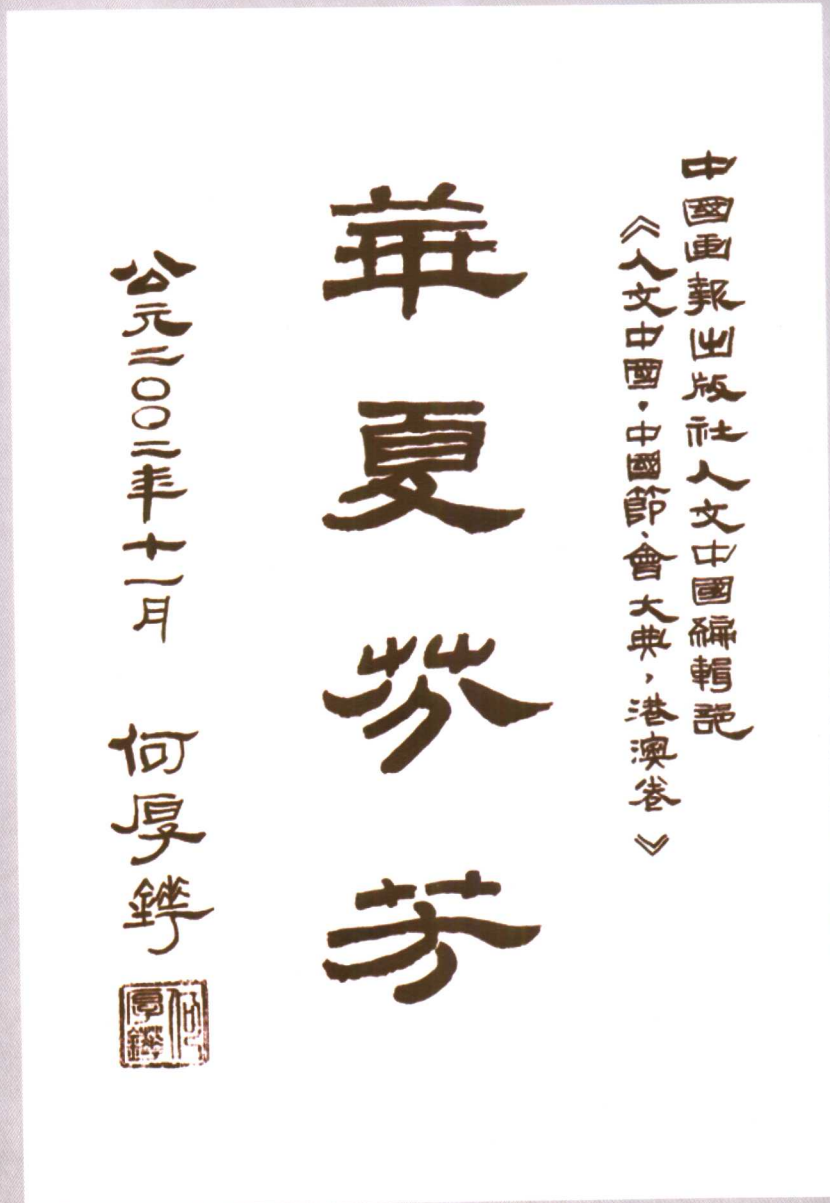 中國画報出版社人文中國編輯部
《人文中國·中國節、會大典，港澳卷》
華夏芬芳
公元二〇〇二年十一月 何厚鏵
何厚鏵